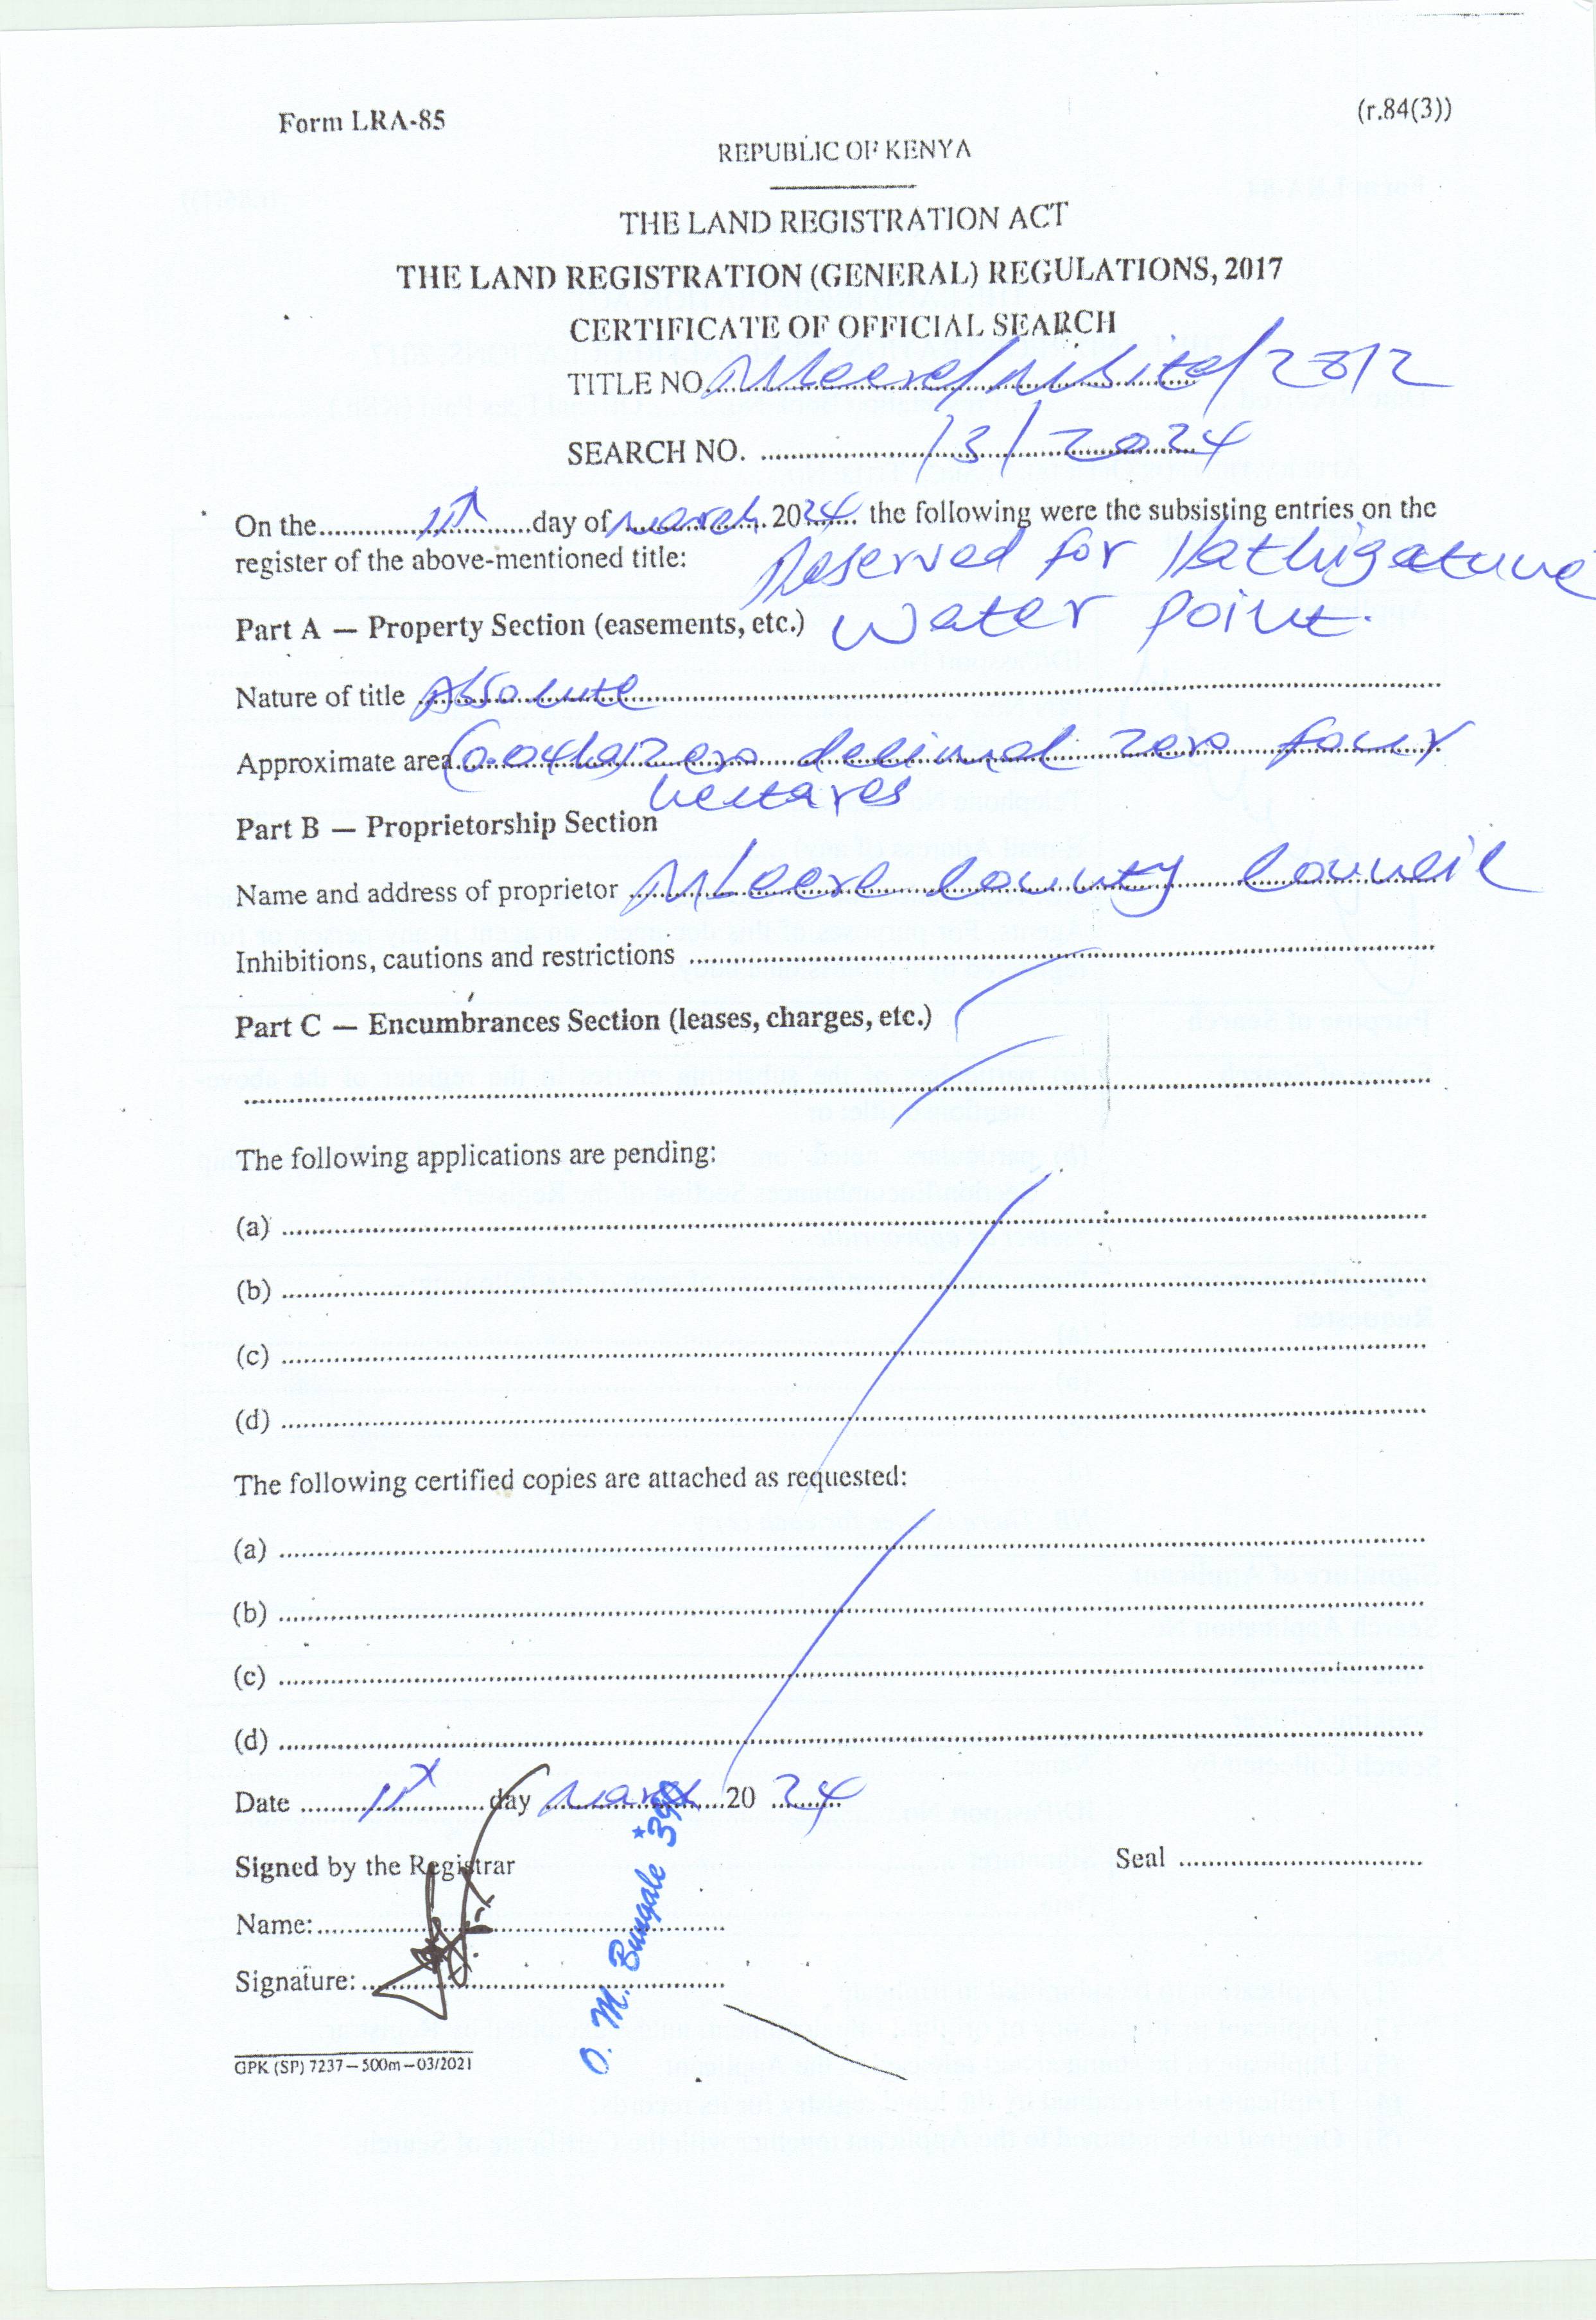 Form LRA-85
(r.84(3))
REPUBLIC OF KENYA
THE LAND REGISTRATION ACT
THE LAND REGISTRATION (GENERAL) REGULATIONS, 2017
CERTIFICATE OF OFFICIAL SEARCH
TITLE NO. /2812
SEARCH NO. 13/2024
On the 11th day of March 2024 the following were the subsisting entries on the
register of the above-mentioned title: Reserved for
Part A — Property Section (easements, etc.) Water point.
Nature of title Absolute
Approximate area (0.04ha) zero decimal zero four
hectares
Part B — Proprietorship Section
Name and address of proprietor County Council
Inhibitions, cautions and restrictions
Part C — Encumbrances Section (leases, charges, etc.)
The following applications are pending:
(a)
(b)
(c)
(d)
The following certified copies are attached as requested:
(a)
(b)
(c)
(d)
Date 11th day March 20 24
Signed by the Registrar
Seal
Name:
Signature:
O. M.
GPK (SP) 7237—500m—03/2021